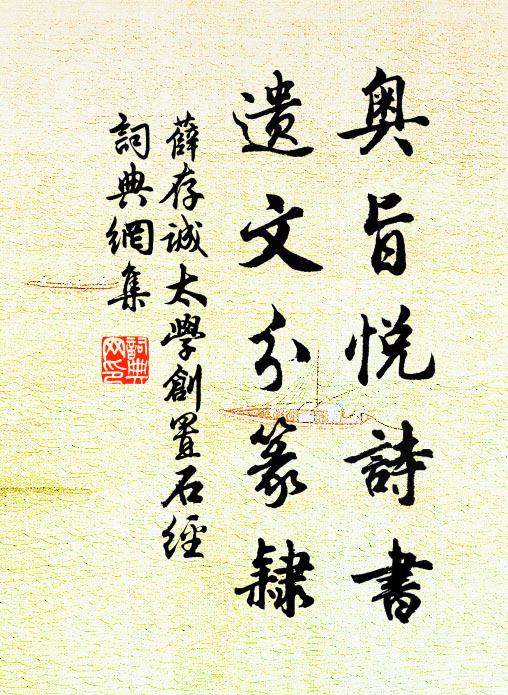 奥旨悦詩書
遗文分篆隸
薛存诚太學創置石經
詞典網集
詞典网印